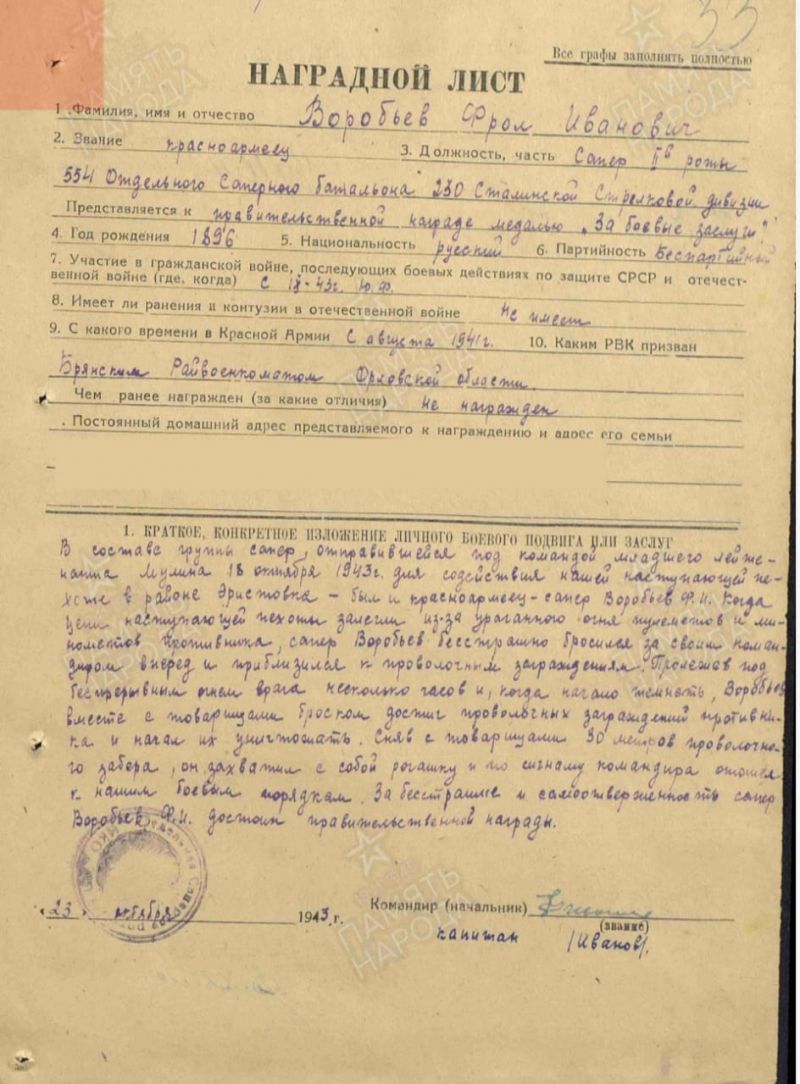 33
Все графы заполнять полностью
НАГРАДНОЙ ЛИСТ
1. Фамилия, имя и отчество Воробьев Фрол Иванович
2. Звание красноармеец 3. Должность, часть Сапер IIй роты
554 Отдельного Саперного батальона 230 Сталинской Стрелковой дивизии
Представляется к правительственной награде медалью „За боевые заслуги".
4. Год рождения 1896 5. Национальность русский 6. Партийность Беспартийный
7. Участие в гражданской войне, последующих боевых действиях по защите СРСР и отечест-
венной войне (где, когда) С IX-43г. Ю.Ф.
8. Имеет ли ранения и контузии в отечественной войне Не имеет
9. С какого времени в Красной Армии С августа 1941г. 10. Каким РВК призван
Брянским Райвоенкоматом Орловской области
Чем ранее награжден (за какие отличия) Не награжден
. Постоянный домашний адрес представляемого к награждению и адрес его семьи
1. КРАТКОЕ, КОНКРЕТНОЕ ИЗЛОЖЕНИЕ ЛИЧНОГО БОЕВОГО ПОДВИГА ИЛИ ЗАСЛУГ
В составе группы сапер, отправившейся под командой младшего лейте-
нанта Мулина 18 октября 1943г. для содействия нашей наступающей пе-
хоте в районе Эристовка – был и красноармеец-сапер Воробьев Ф.И. Когда
цепи наступающей пехоты залегли из-за ураганного огня пулеметов и ми-
нометов противника, сапер Воробьев бесстрашно бросился за своим коман-
диром вперед и приблизился к проволочным заграждениям. Пролежав под
беспрерывным огнем врага несколько часов и, когда начало темнеть, Воробьев
вместе с товарищами броском достиг проволочных заграждений противни-
ка и начал их уничтожать. Сняв с товарищами 30 метров проволочно-
го забора, он захватил с собой рогашку и по сигналу командира отошел
к нашим боевым порядкам. За бесстрашие и самоотверженность сапер
Воробьев Ф.И. достоин правительственной награды.
„23" октября 1943 г. Командир (начальник)
(звание)
капитан /Иванов/.
ПАМЯТЬ НАРОДА